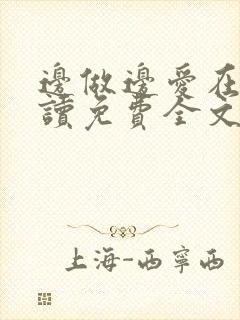 邊做邊愛在
讀免費全文
上海-西寧西